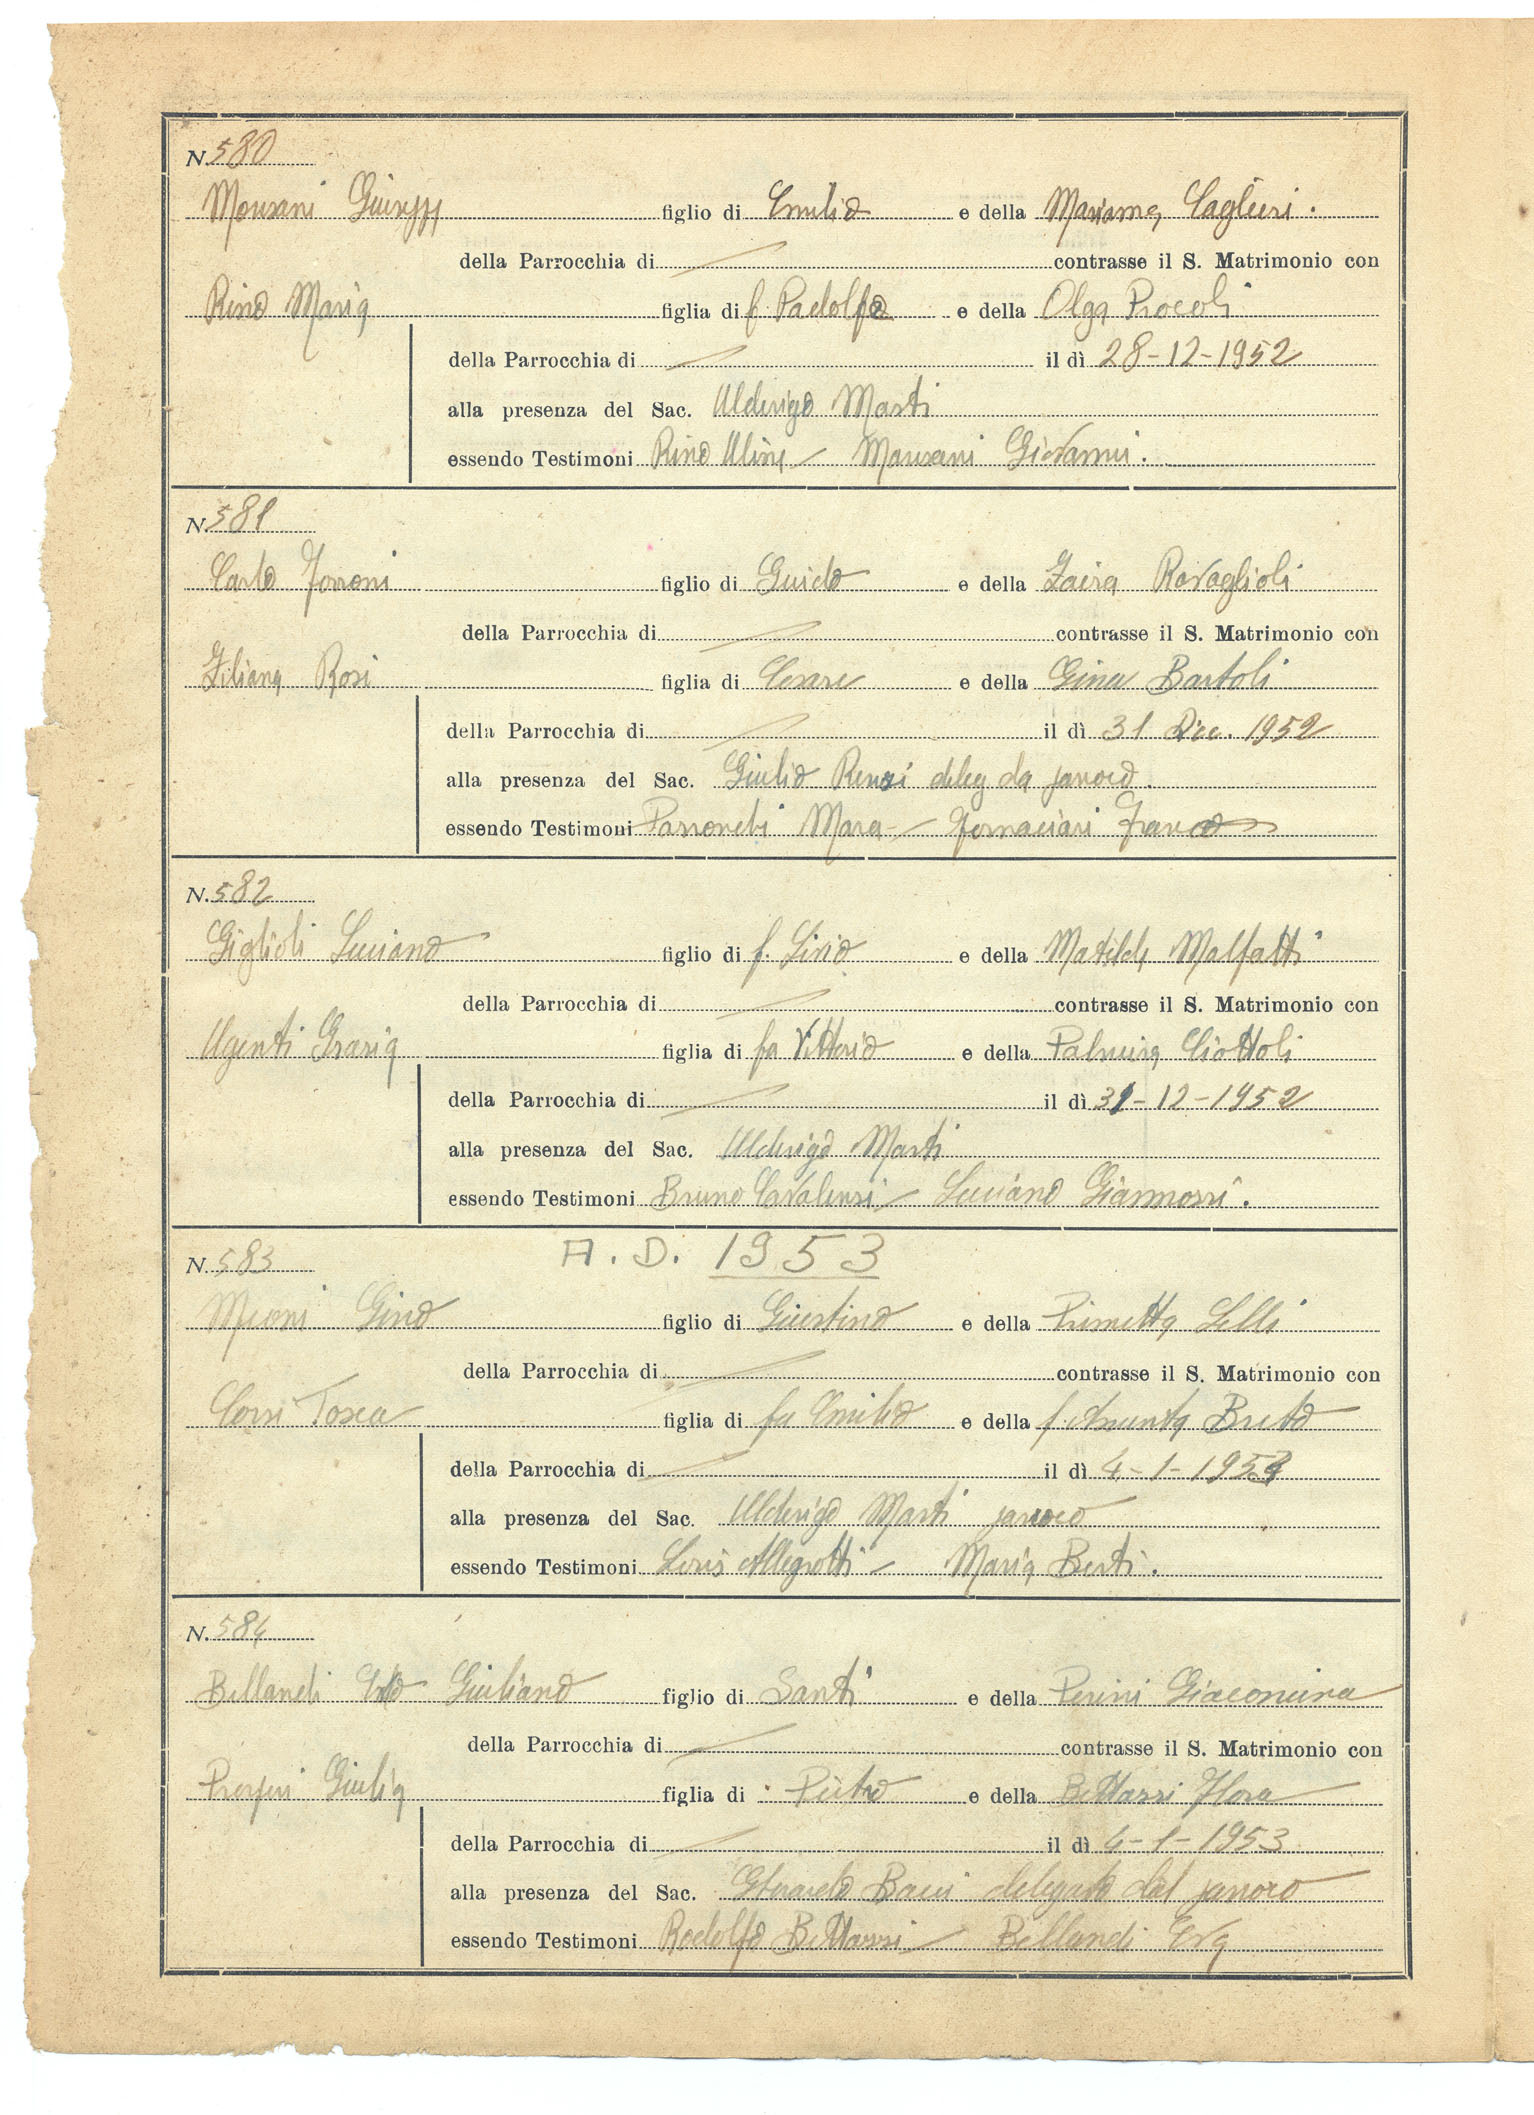 N. 580
Giuseppe figlio di Emilio e della Marianna Caglieri.
della Parrocchia di contrasse il S. Matrimonio con
Rino Maria figlia di f. Padolfo e della Olga Procoli
della Parrocchia di il dì 28-12-1952
alla presenza del Sac. Alderigo Marti
essendo Testimoni Rino - Giovanni.
N. 581
Carlo Forroni figlio di Guido e della Zaira Ravaglioli
della Parrocchia di contrasse il S. Matrimonio con
Liliana Rosi figlia di Cesare e della Gina Bartoli
della Parrocchia di il dì 31 Dic. 1952
alla presenza del Sac. Giulio Renzi deleg da parroco.
essendo Testimoni Parronchi Mara - Fornaciari Franco
N. 582
Giglioli Luciano figlio di f. Livio e della Matilde Malfatti
della Parrocchia di contrasse il S. Matrimonio con
Agenti Grazia figlia di fu Vittorio e della Palmira Ciottoli
della Parrocchia di il dì 31-12-1952
alla presenza del Sac. Alderigo Marti
essendo Testimoni Bruno Cavalensi - Luciano Giannossi.
N. 583 A. D. 1953
Meoni Gino figlio di Giustino e della Primetta Lelli
della Parrocchia di contrasse il S. Matrimonio con
Corsi Tosca figlia di fu Emilio e della f. Assunta
della Parrocchia di il dì 4-1-1953
alla presenza del Sac. Alderigo Marti parroco
essendo Testimoni Loris Allegrotti - Maria Berti.
N. 584
Bellandi Giuliano figlio di Santi e della Perini Giacomina
della Parrocchia di contrasse il S. Matrimonio con
Prosperi Giulia figlia di Pietro e della Bettazzi Flora
della Parrocchia di il dì 4-1-1953
alla presenza del Sac. Gherardo Bacci delegato dal parroco
essendo Testimoni Rodolfo Bettazzi - Bellandi Eva